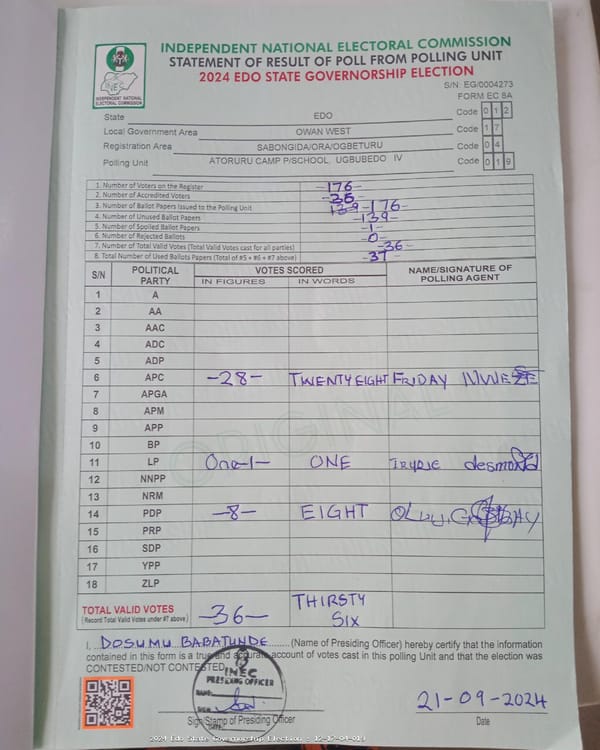 INDEPENDENT NATIONAL ELECTORAL COMMISSION
STATEMENT OF RESULT OF POLL FROM POLLING UNIT
2024 EDO STATE GOVERNORSHIP ELECTION
S/N: EG/0004273
FORM EC 8A
INEC
INDEPENDENT NATIONAL ELECTORAL COMMISSION
State EDO Code 0 1 2
Local Government Area OWAN WEST Code 1 7
Registration Area SABONGIDA/ORA/OGBETURU Code 0 4
Polling Unit ATORURU CAMP P/SCHOOL, UGBUBEDO IV Code 0 1 9
1. Number of Voters on the Register -176-
2. Number of Accredited Voters
3. Number of Ballot Papers Issued to the Polling Unit 139 -176-
4. Number of Unused Ballot Papers -139-
5. Number of Spoiled Ballot Papers -1-
6. Number of Rejected Ballots -0-
7. Number of Total Valid Votes (Total Valid Votes cast for all parties) -36-
8. Total Number of Used Ballots Papers (Total of #5 + #6 + #7 above) -37-
S/N POLITICAL PARTY VOTES SCORED NAME/SIGNATURE OF POLLING AGENT
IN FIGURES IN WORDS
1 A
2 AA
3 AAC
4 ADC
5 ADP
6 APC -28- TWENTY EIGHT FRIDAY
7 APGA
8 APM
9 APP
10 BP
11 LP One-1- ONE desmond
12 NNPP
13 NRM
14 PDP -8- EIGHT
15 PRP
16 SDP
17 YPP
18 ZLP
TOTAL VALID VOTES -36- THIRSTY SIX
(Record Total Valid Votes under #7 above)
I, DOSUMU BABATUNDE (Name of Presiding Officer) hereby certify that the information
contained in this form is a true and accurate account of votes cast in this polling Unit and that the election was
CONTESTED/NOT CONTESTED
INEC
PRESIDING OFFICER
NAME:
SIGN:
DATE
21-09-2024
Sign/Stamp of Presiding Officer Date
ORIGINAL
2024 Edo State Governorship Election : 12-17-04-019